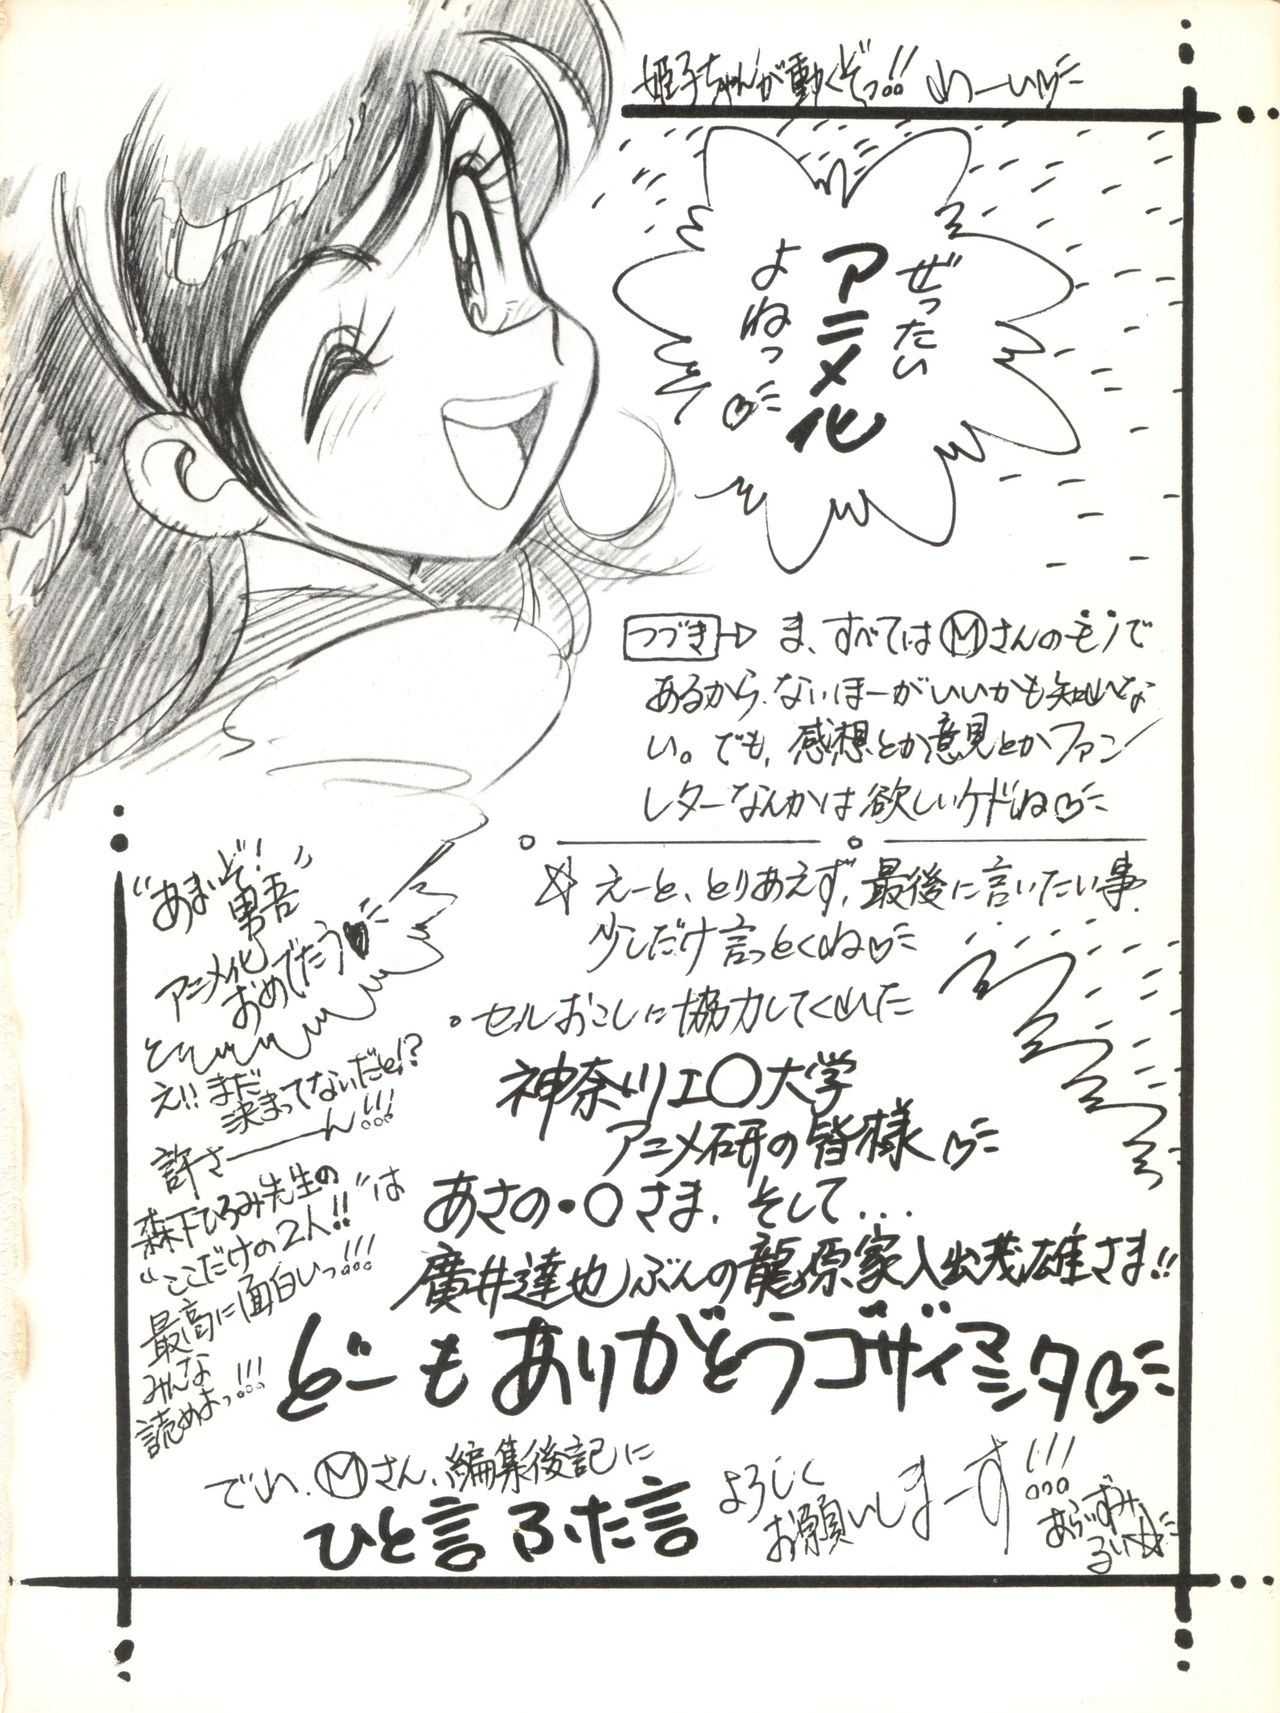 姫子ちゃんが動くぞっ!! わーい
ぜったい
アニメ化
よねっ
つづき
ま、すべてはⓂさんのモノで
あるから、ないほーがいいかも知れな
い。でも、感想とか意見とかファン
レターなんかは欲しいケドね
えーと、とりあえず、最後に言いたい事
少しだけ言っとくね
。セルおこしに協力してくれた
神奈川工○大学
アニメ研の皆様
あさの・○さま、そして...
廣井達也ぶんの龍原家入出茂雄さま!!
どーもありがとうゴザイマシタ
"あまいぞ!
男吾"
アニメ化
おめでたう
え!! まだ
決まってないだと!?
許さーーん!!!
森下ひろみ先生の
"ここだけの2人!!"は
最高に面白いっ!!!
みんな
読めよっ!!!
でわ、Ⓜさん、編集後記に
ひと言ふた言
よろしく
お願いしまーす!!!
あらいずみ
るい